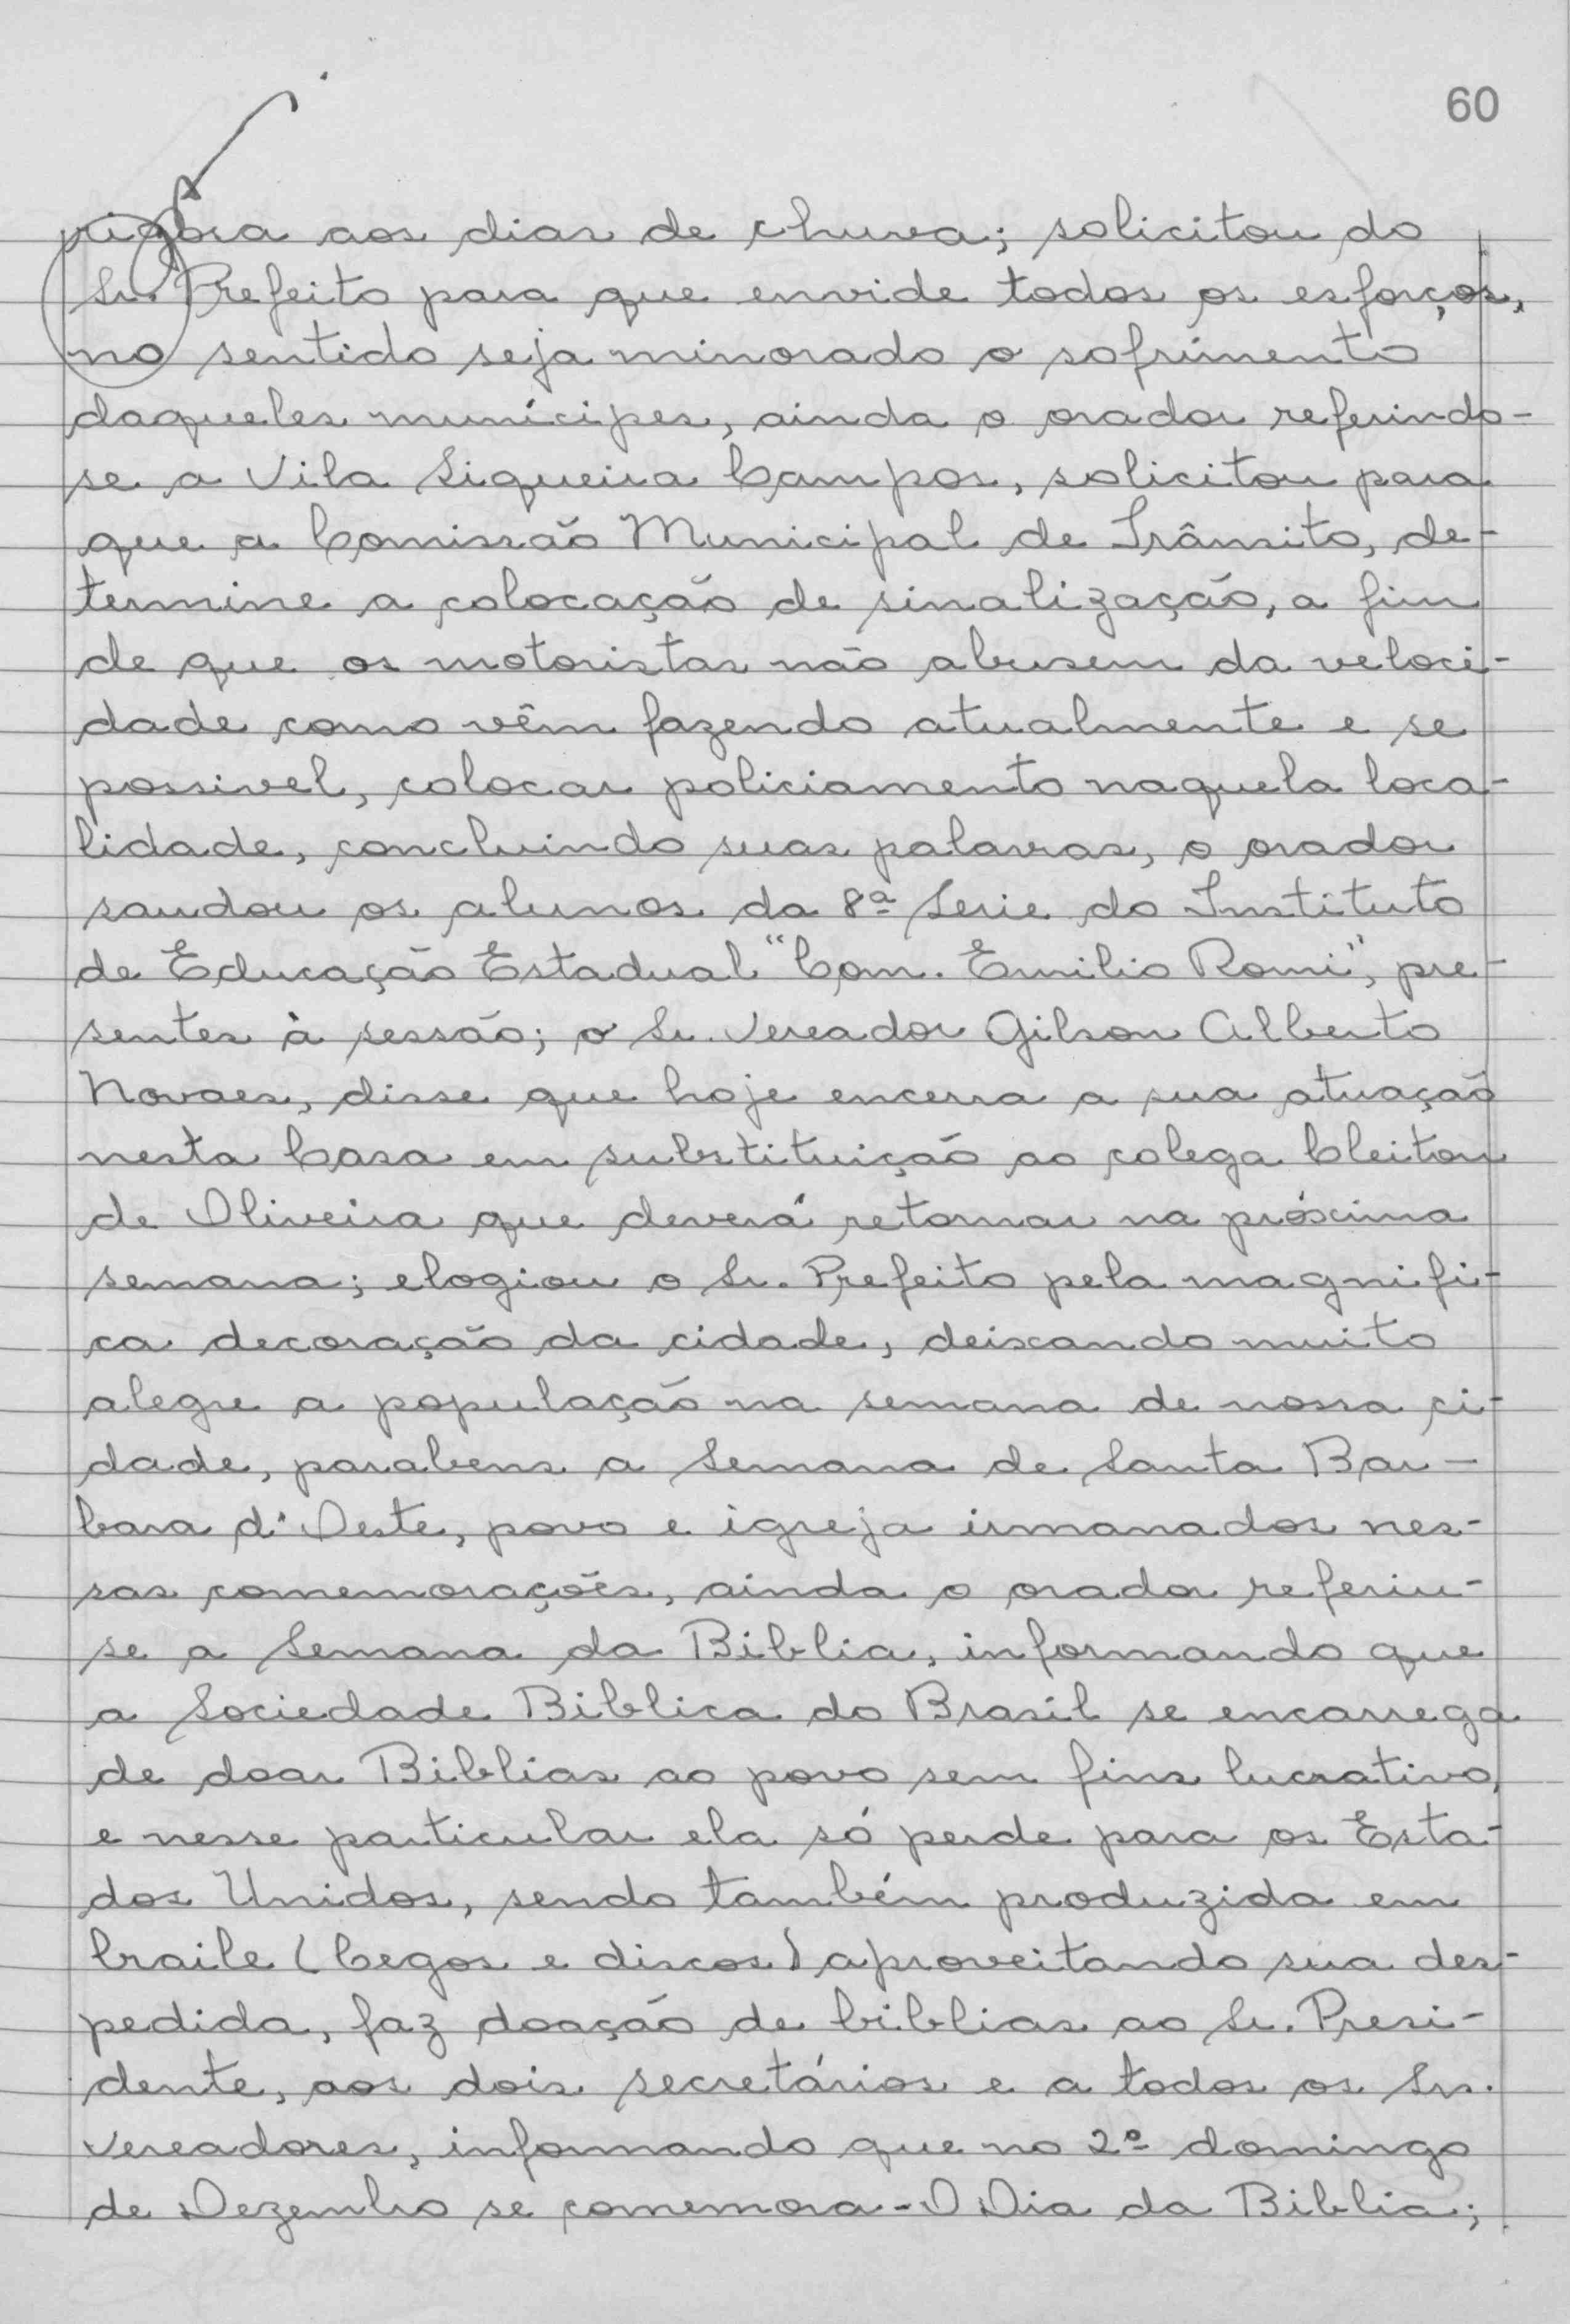 60
rigora aos dias de chuva; solicitou do
Sr. Prefeito para que envide todos os esforços,
no sentido seja minorado o sofrimento
daqueles munícipes, ainda o orador referindo-
se a Vila Siqueira Campos, solicitou para
que a Comissão Municipal de Trânsito, de-
termine a colocação de sinalização, a fim
de que os motoristas não abusem da veloci-
dade como vêm fazendo atualmente e se
possivel, colocar policiamento naquela loca-
lidade, concluindo suas palavras, o orador
saudou os alunos da 8ª Serie do Instituto
de Educação Estadual "Com. Emilio Romi", pre-
sentes à sessão; o Sr. Vereador Gilson Alberto
Novaes, disse que hoje encerra a sua atuação
nesta Casa em substituição ao colega Cleiton
de Oliveira que deverá retornar na próxima
semana; elogiou o Sr. Prefeito pela magnifi-
ca decoração da cidade, deixando muito
alegre a população na semana de nossa ci-
dade, parabens a Semana de Santa Bar-
bara d'Oeste, povo e igreja irmanados nes-
sas comemorações, ainda o orador referiu-
se a Semana da Biblia, informando que
a Sociedade Biblica do Brasil se encarrega
de doar Biblias ao povo sem fins lucrativo,
e nesse particular ela só perde para os Esta-
dos Unidos, sendo também produzida em
braile (Cegos e discos) aproveitando sua des-
pedida, faz doação de biblias ao Sr. Presi-
dente, aos dois secretários e a todos os Srs.
Vereadores, informando que no 2º domingo
de Dezembro se comemora - O Dia da Biblia;